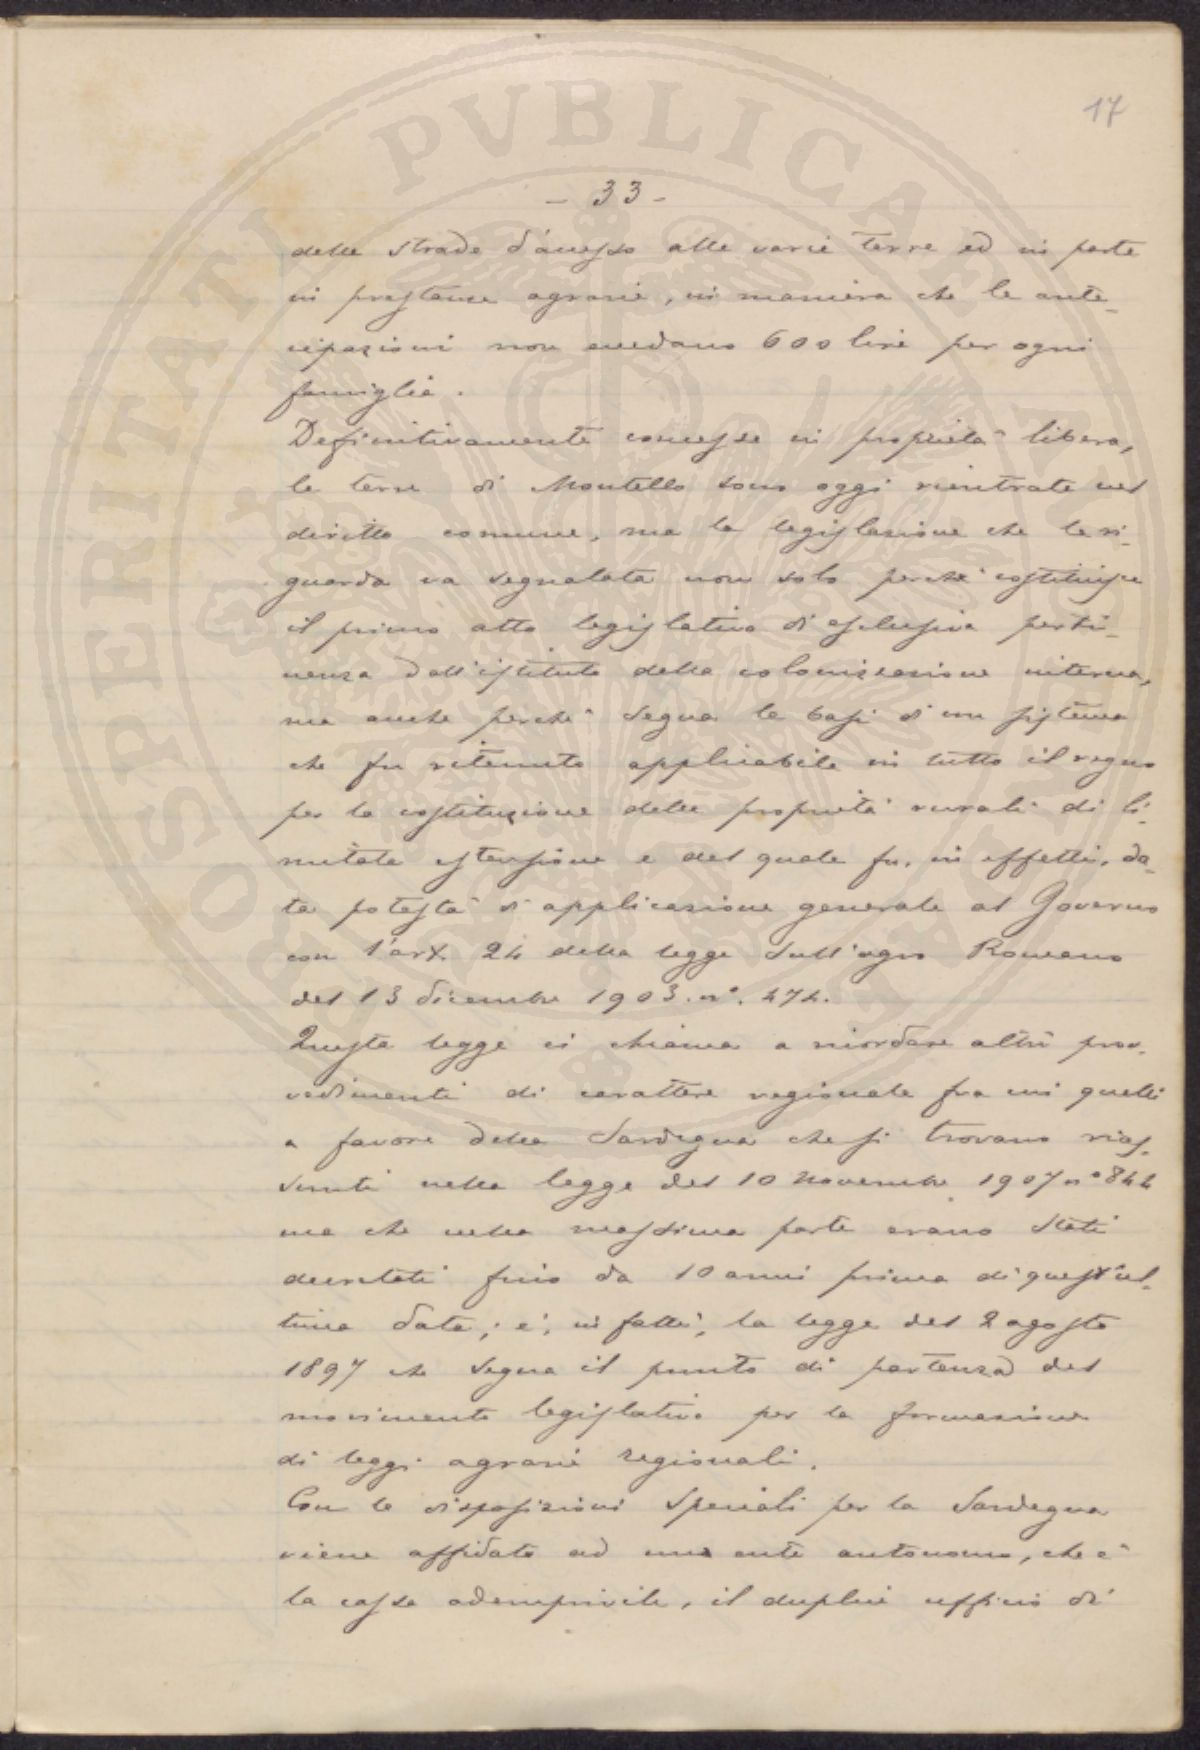 17
- 33 -
delle strade d'accesso alle varie terre ed in parte
in prestanze agrarie, in maniera che le ante-
cipazioni non eccedano 600 lire per ogni
famiglia.
Definitivamente concesse in proprietà libera,
le terre di Montello sono oggi rientrate nel
diritto comune, ma la legislazione che le ri-
guarda va segnalata non solo perchè costituisce
il primo atto legislativo di esclusiva perti-
nenza dall'istituto della colonizzazione interna,
ma anche perchè segna le basi di un sistema
che fu ritenuto applicabile in tutto il regno
per la costituzione delle proprietà rurali di li-
mitata estensione e del quale fu, in effetti, da-
ta potestà di applicazione generale al Governo
con l'art. 24 della legge sull'agro Romano
del 13 dicembre 1903. n°. 474.
Questa legge ci chiama a ricordare altri prov-
vedimenti di carattere regionale fra cui quelli
a favore della Sardegna che si trovano rias-
sunti nella legge del 10 Novembre 1907 n° 844
ma che nella massima parte erano stati
decretati fino da 10 anni prima di quest'ul-
tima data; è, in fatti, la legge del 2 agosto
1897 che segna il punto di partenza del
movimento legislativo per la formazione
di leggi agrarie regionali.
Con le disposizioni speciali per la Sardegna
viene affidato ad uno ente autonomo, che è
la cassa ademprivile, il duplice ufficio di
PROSPERITATI PVBLICAE